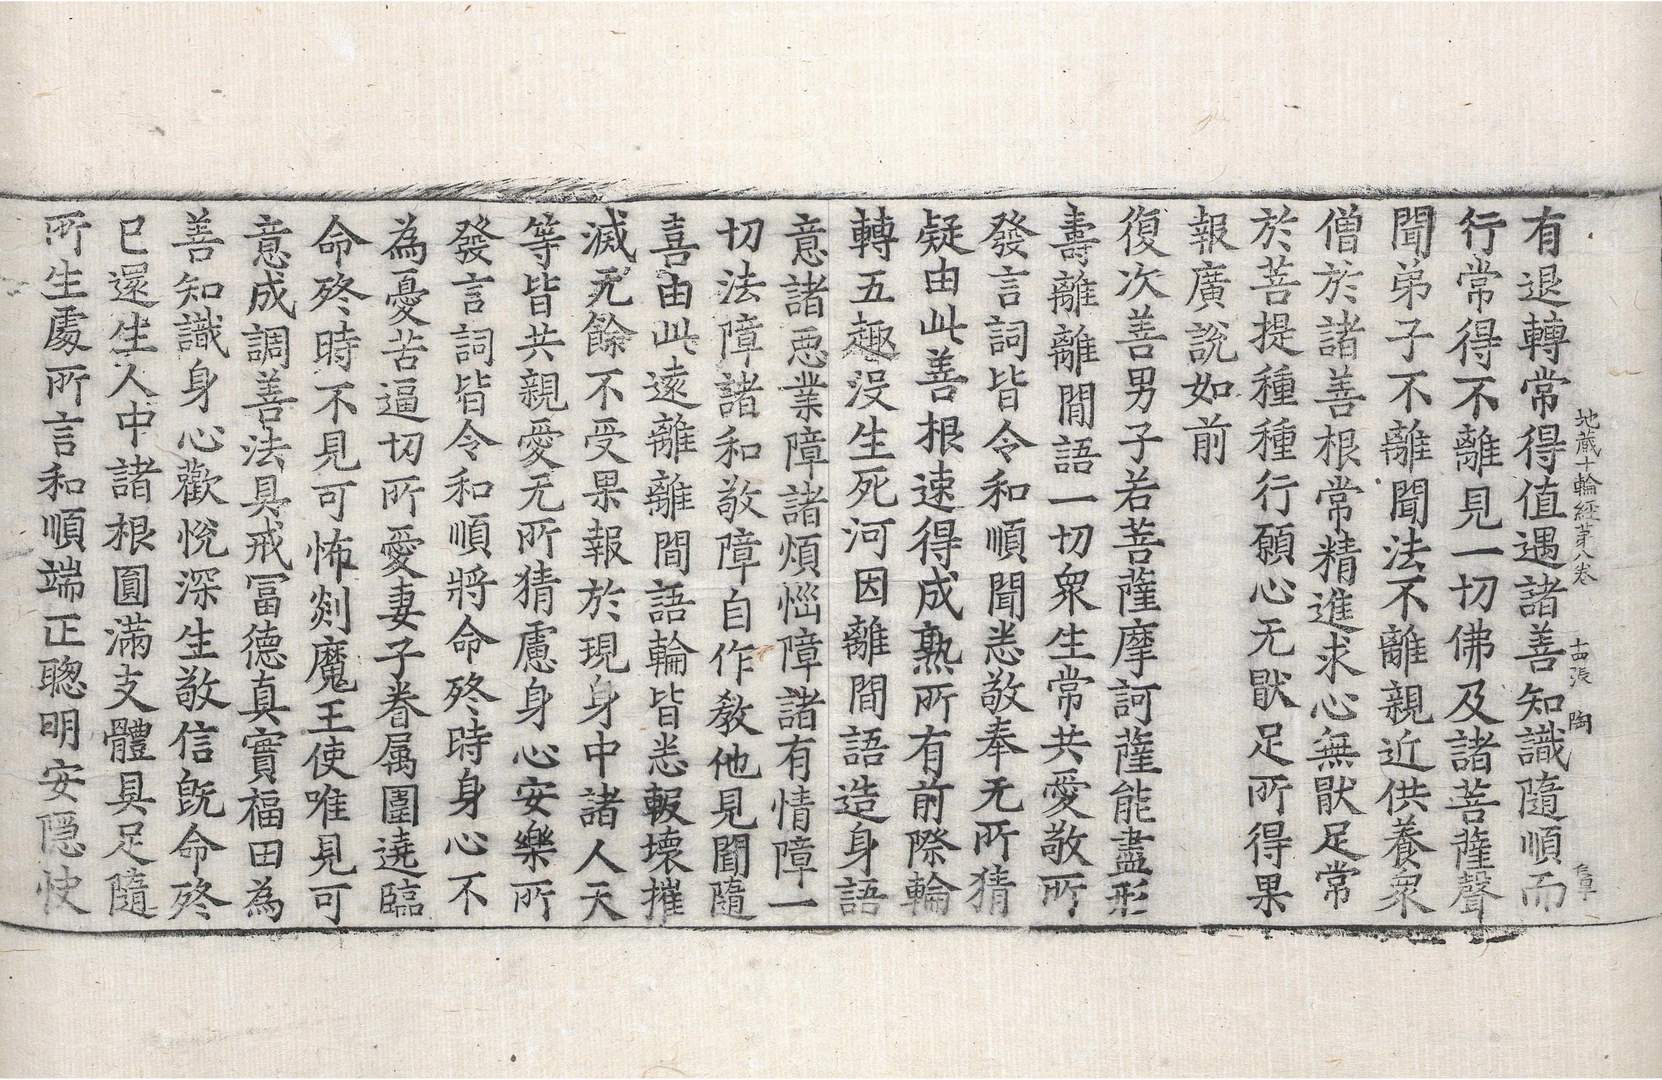 地蔵十輪経苐八卷 十四張 陶
有退轉常得值遇諸善知識隨順而
行常得不離見一切佛及諸菩薩聲
聞弟子不離聞法不離親近供養衆
僧於諸善根常精進求心無猒足常
於菩提種種行願心无猒足所得果
報廣說如前
復次善男子若菩薩摩訶薩能盡形
壽離離間語一切衆生常共愛敬所
發言詞皆令和順聞悉敬奉无所猜
疑由此善根速得成熟所有前際輪
轉五趣没生死河因離間語造身語
意諸惡業障諸煩惱障諸有情障一
切法障諸和敬障自作教他見聞隨
喜由此遠離離間語輪皆悉輾壞摧
滅无餘不受果報於現身中諸人天
等皆共親愛无所猜慮身心安樂所
發言詞皆令和順將命終時身心不
為憂苦逼切所愛妻子眷属圍遶臨
命終時不見可怖剡魔王使唯見可
意成調善法具戒冨德真實福田為
善知識身心歡悅深生敬信既命終
已還生人中諸根圓滿支體具足隨
所生處所言和順端正聰明安隱快